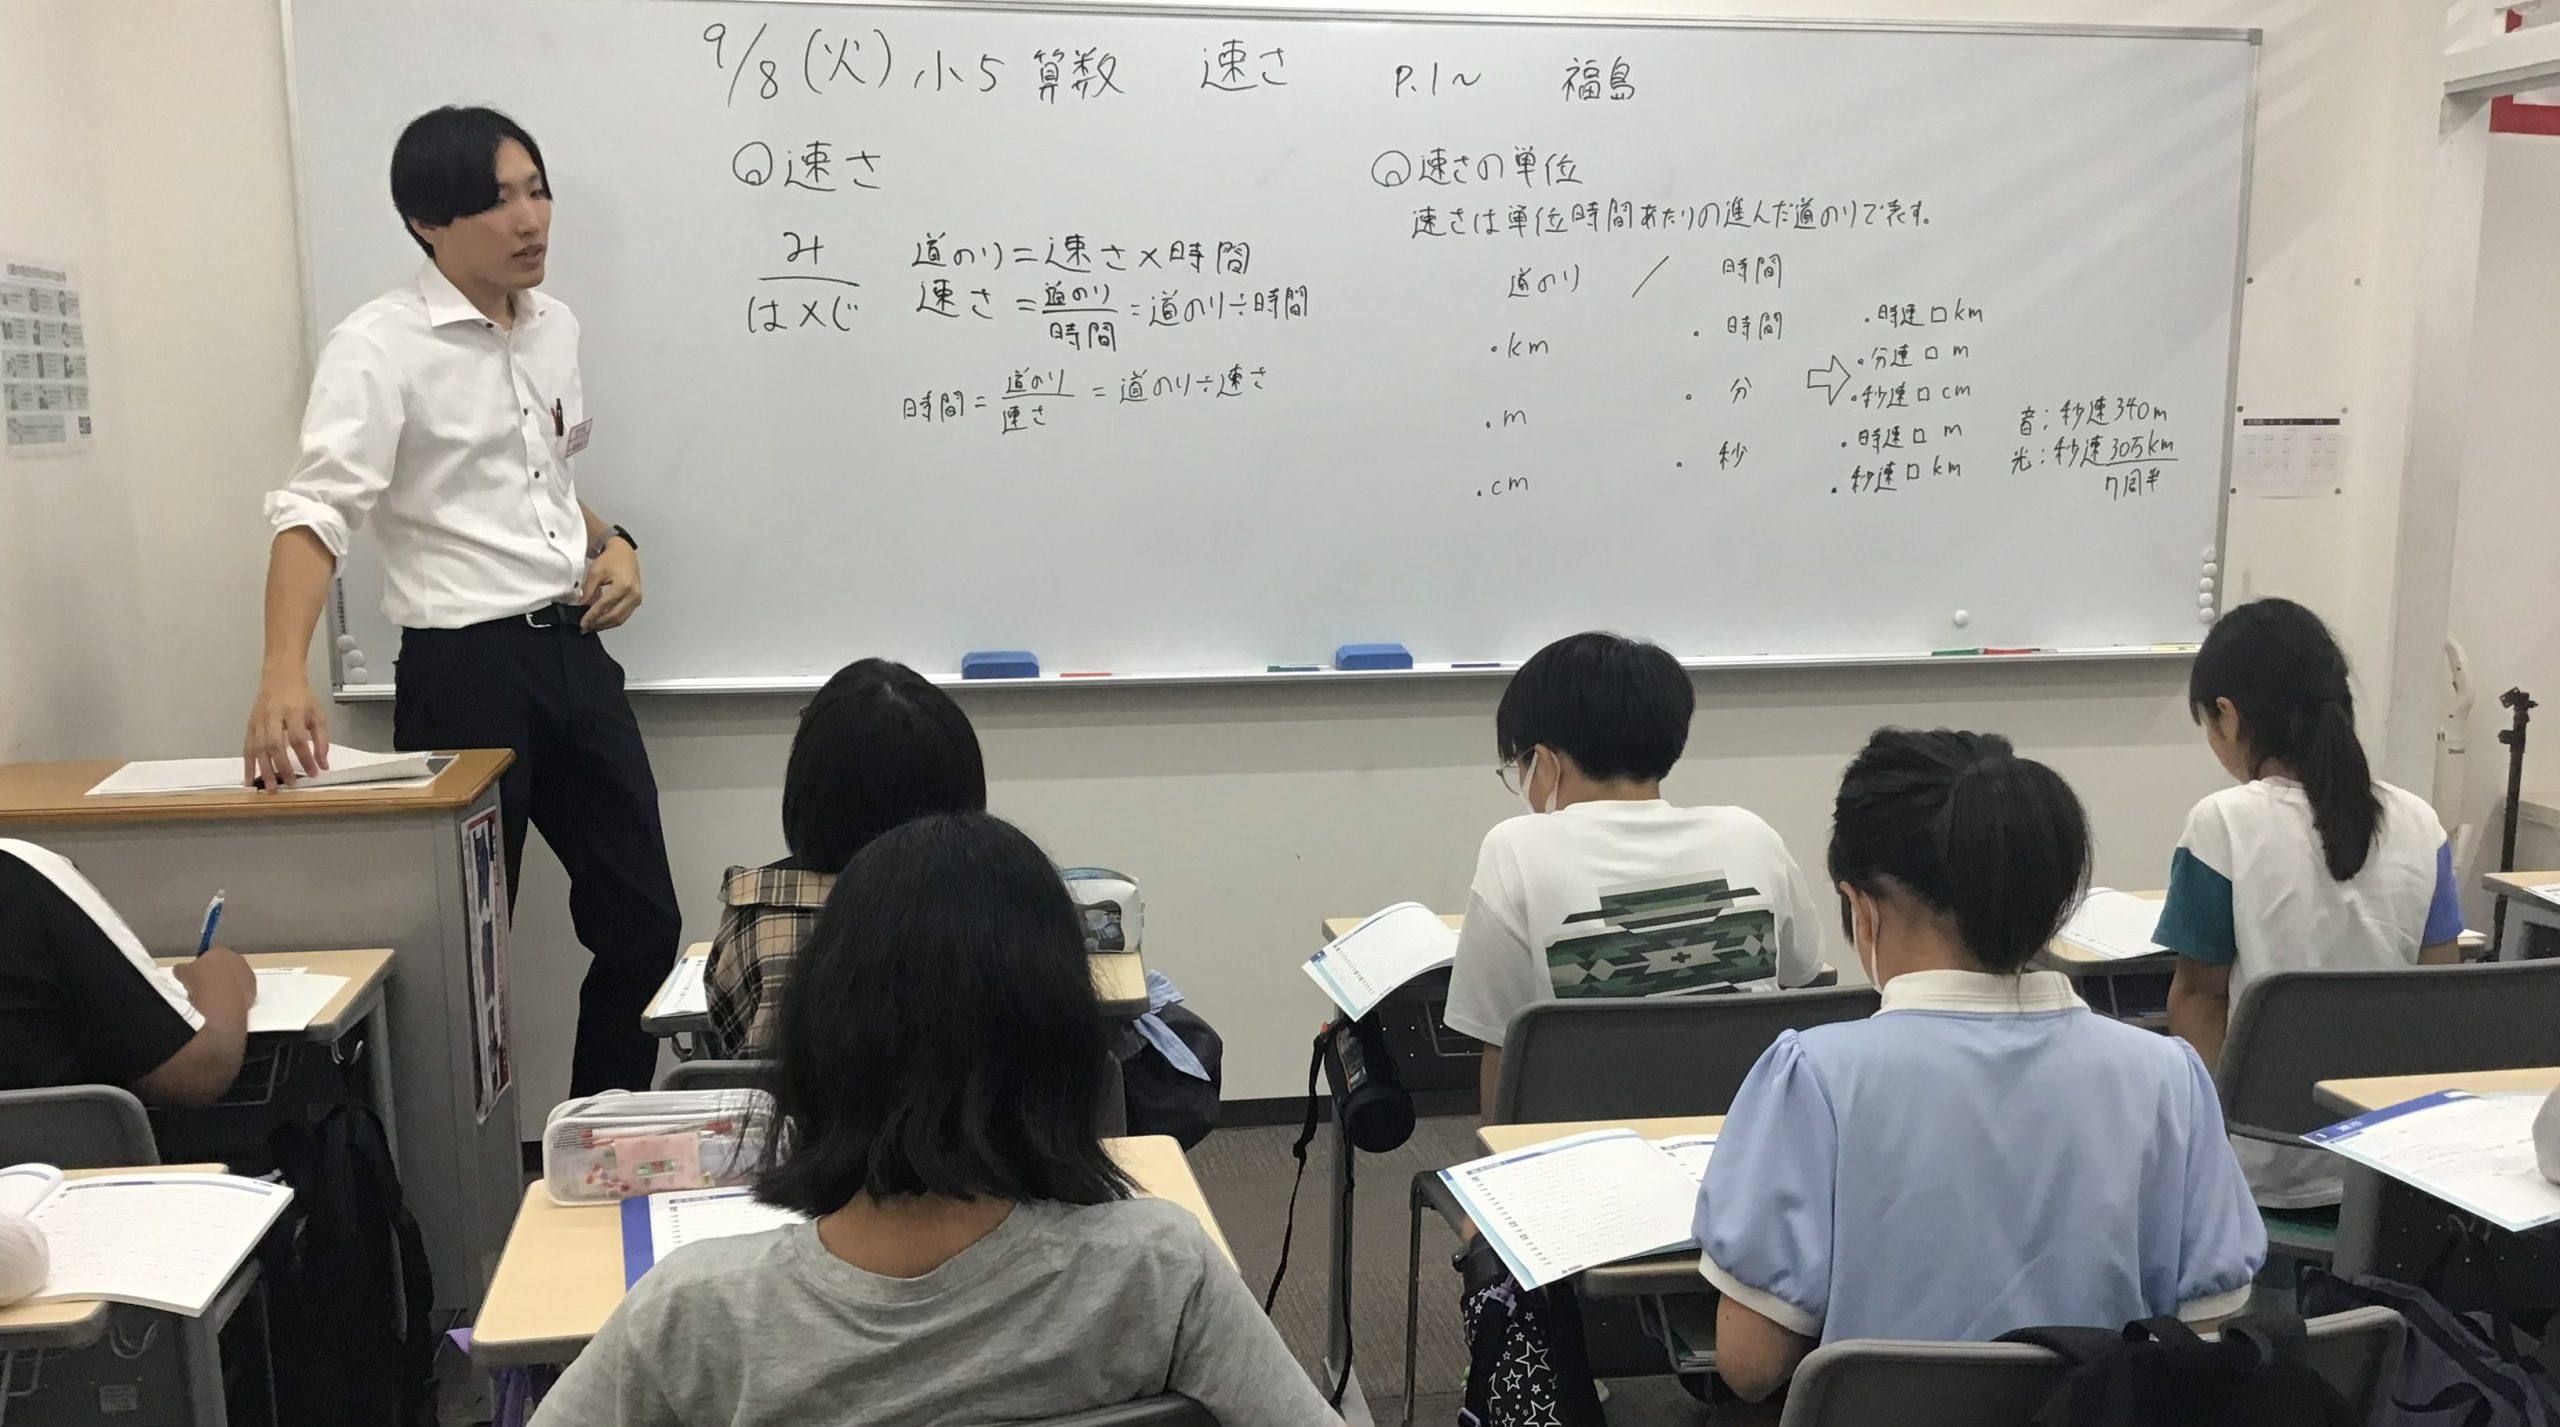 9/8(火) 小5 算数 速さ P.1~ 福島
速さ
み
はxじ
道のり=速さ×時間
速さ=道のり/時間=道のり÷時間
時間=道のり/速さ=道のり÷速さ
速さの単位
速さは単位時間あたりの進んだ道のりで表す。
道のり / 時間
・km
・m
・cm
・時間
・分
・秒
⇨
・時速□km
・分速□m
・秒速□cm
・時速□m
・秒速□km
音:秒速340m
光:秒速30万km
7周半